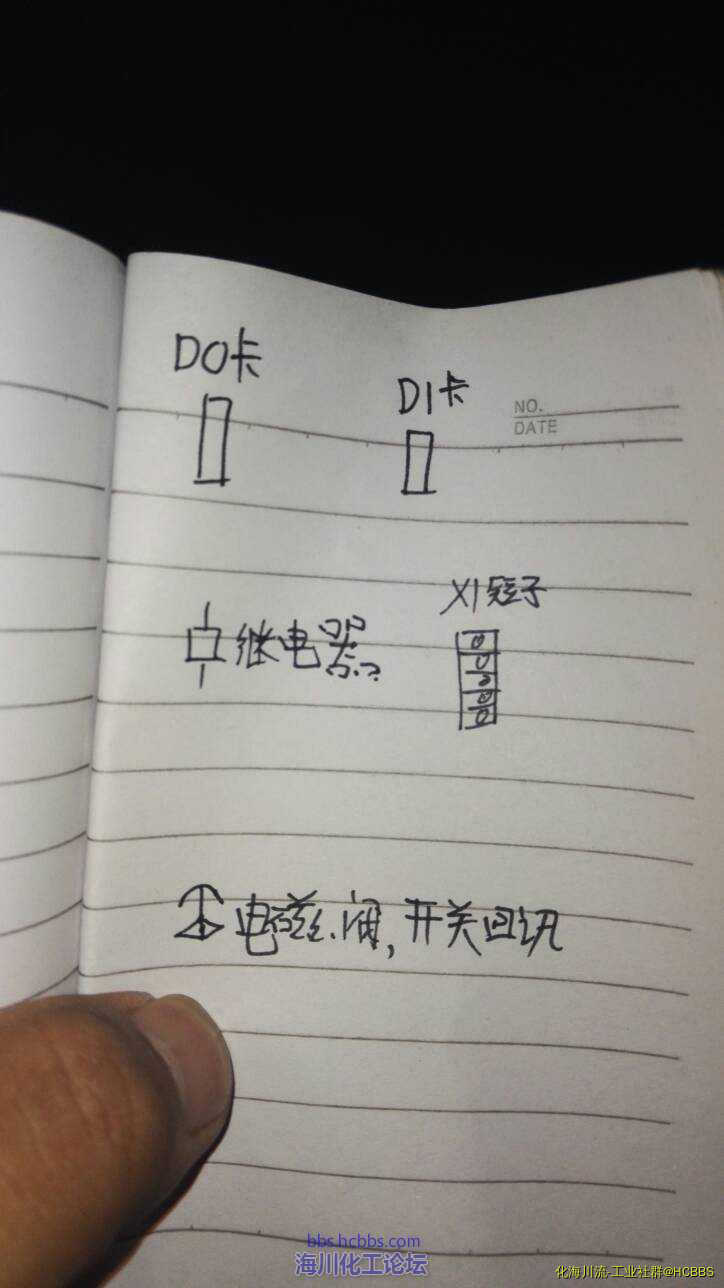 DO卡
DI卡
NO.
DATE
X1端子
继电器
电磁阀,开关回讯
bbs.hcbbs.com
海川化工论坛
化海川流-工业社群@HCBBS